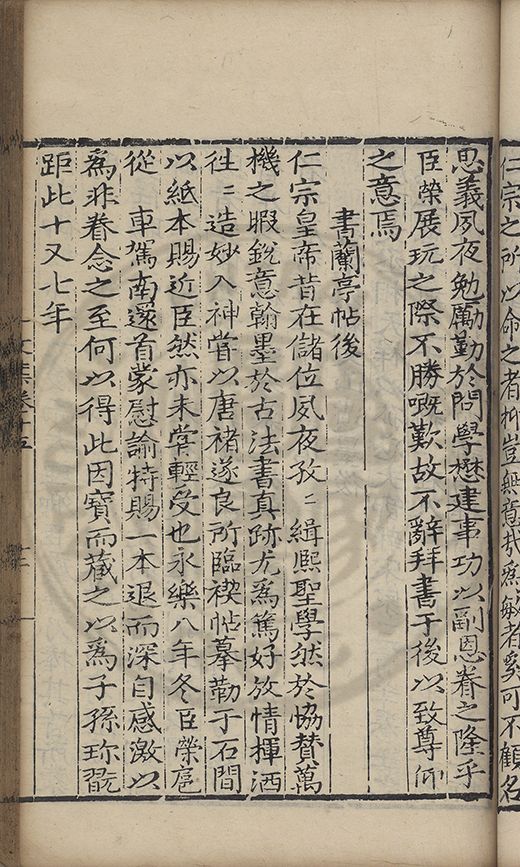 仁宗之所以命之者抑豈無意哉爲敏者奚可不顧名
思義夙夜勉勵勤於問學懋建事功以副恩眷之隆乎
臣榮展玩之際不勝嘅歎故不辭拜書于後以致尊仰
之意焉
書蘭亭帖後
仁宗皇帝昔在儲位夙夜孜〻緝熙聖學然於協贊萬
機之暇銳意翰墨於古法書真跡尤爲篤好放情揮洒
徃〻造妙入神嘗以唐褚遂良所臨禊帖摹勒于石間
以紙本賜近臣然亦未甞輕受也永樂八年冬臣榮扈
從 車駕南還首蒙慰諭特賜一本退而深自感激以
爲非眷念之至何以得此因寶而藏之以爲子孫珎翫
距此十又七年
文集卷十五